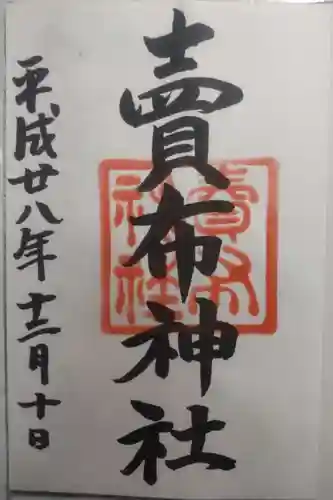 賣布神社
平成廿八年十二月十日
賣布
神社